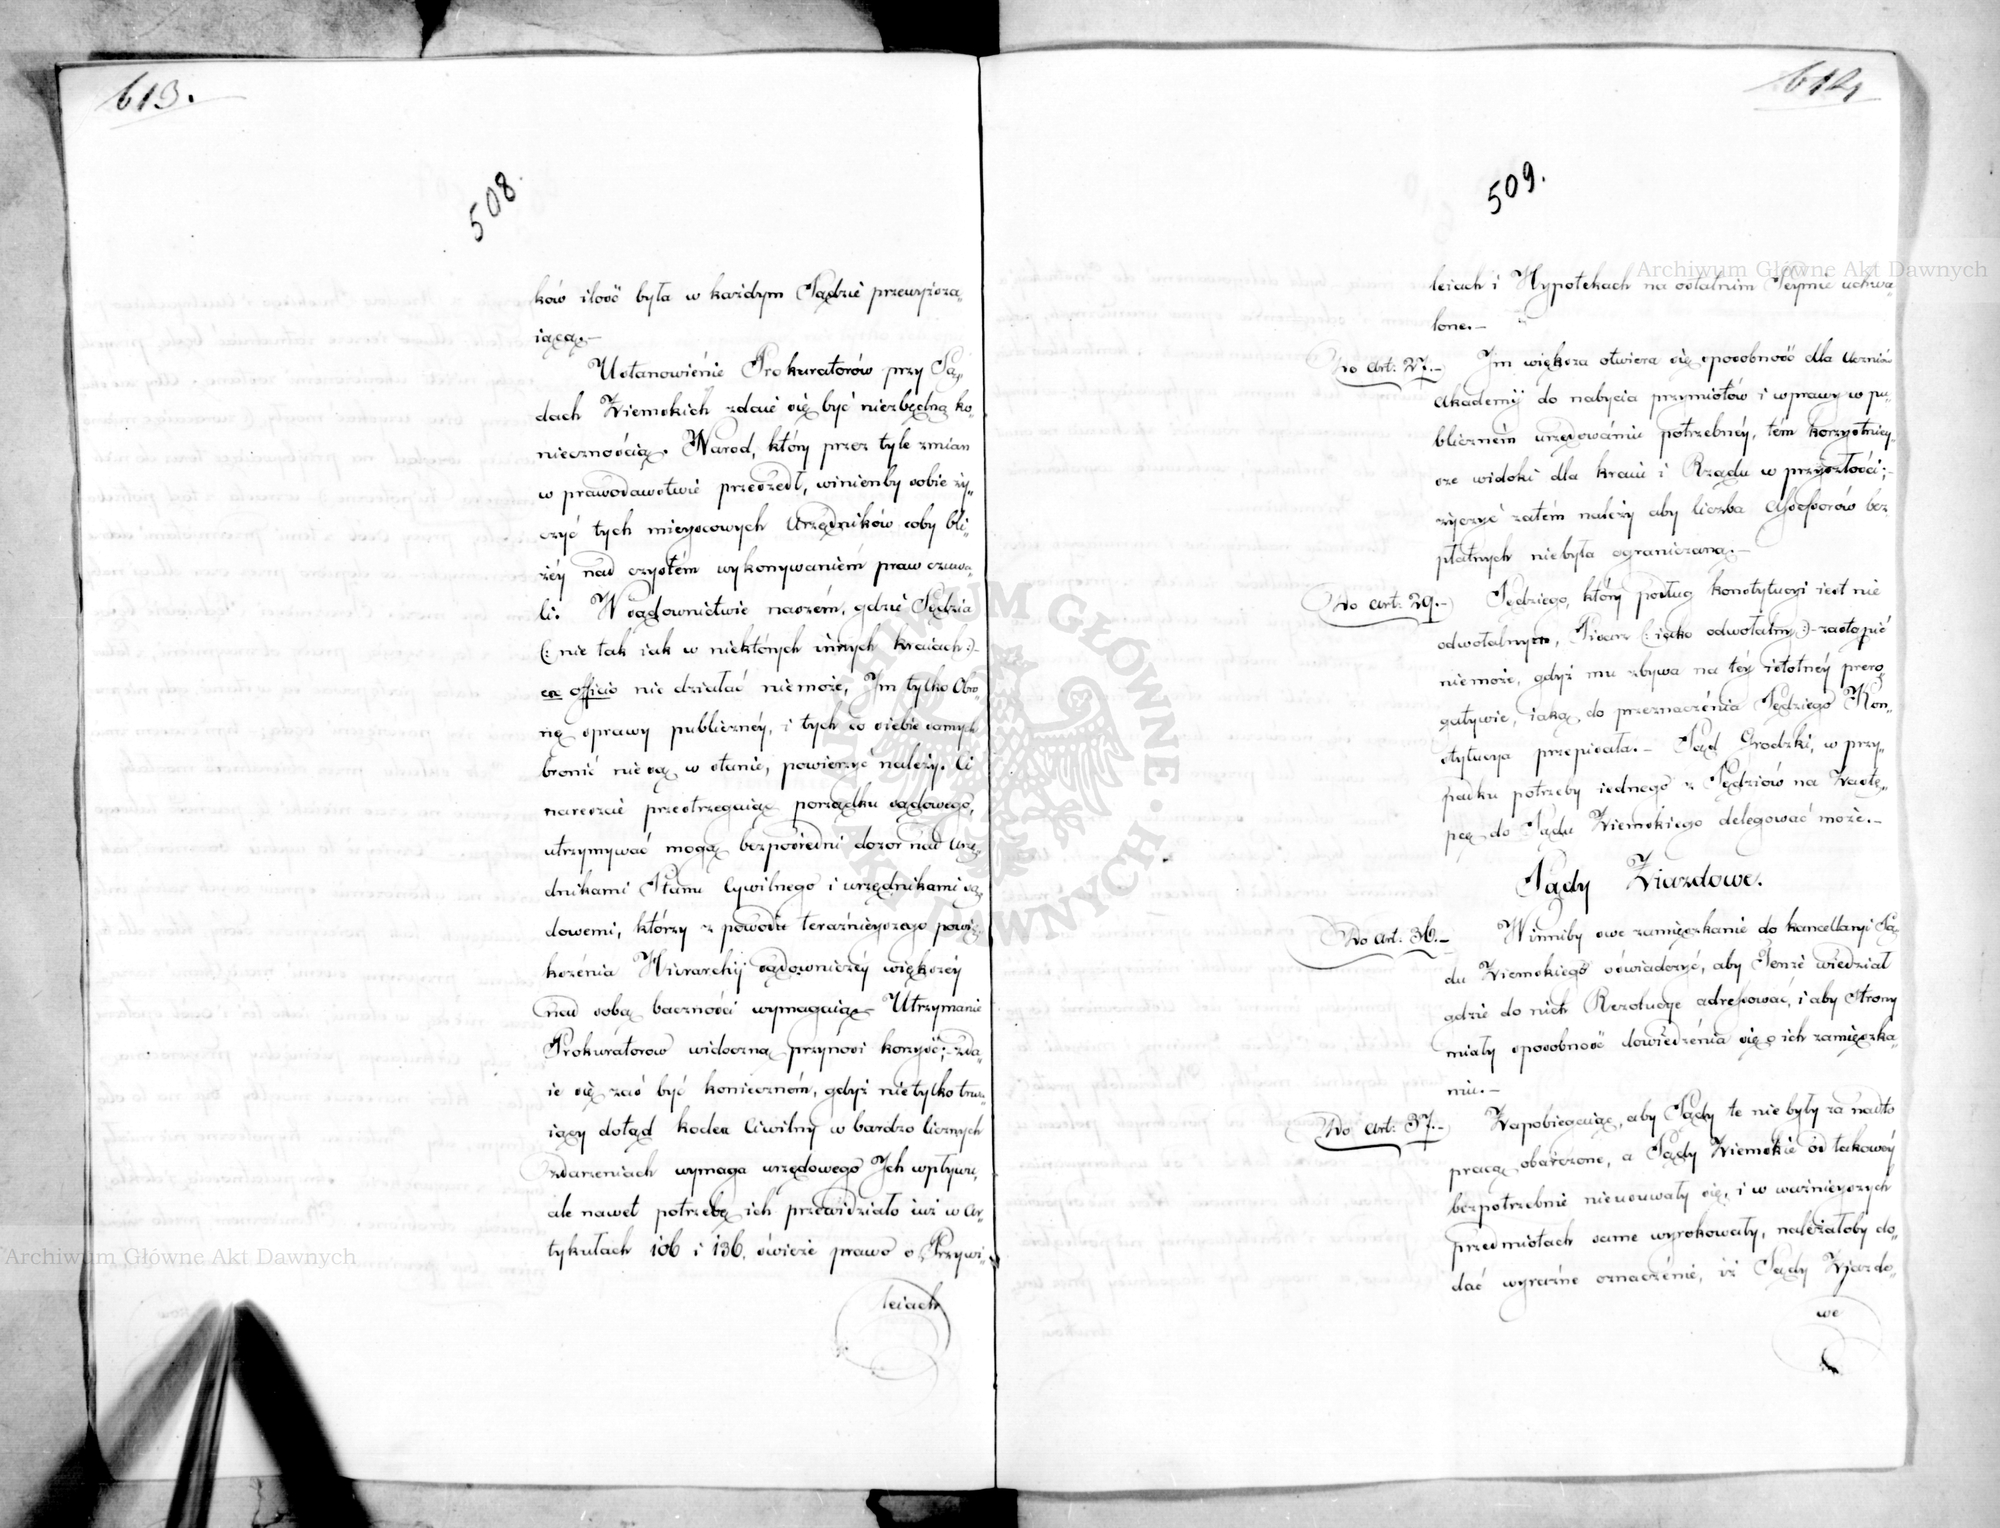 613.
508.
ków ilość była w każdym Sądzie przewyższa„
iącą.—
Ustanowienie Prokuratorów przy Są„
dach Ziemskich zdaie się być niezbędną ko„
niecznością. Narod, który przez tyle zmian
w prawodawstwie przeszedł, winienby sobie ży„
czyć tych mieyscowych Urzędników coby bli„
żéy nad czystém wykonywaniém praw czuwa„
li. W sądownictwie naszém, gdzie Sędzia
(: nie tak iak w niektórych innych kraiach :)—
ex officio nie działać niemoże, Im tylko Obro„
nę sprawy publicznéy, i tych co siebie samych
bronić nie są w stanie, powierzyć należy. Ci
nareszcie przestrzegaiąc porządku sądowego,
utrzymywać mogą bezpośredni dozor nad Urzę„
dnikami Stanu Cywilnego i urzędnikami są„
dowemi, którzy z powodu teraźnieyszego powię„
kszenia Hierarchij sądowniczéy większéy
nad sobą baczności wymagaią.— Utrzymanie
Prokuratorow widoczną przynosi korzyść;— zda„
ie się zaś być koniecznóm, gdyż nietylko trwa„
iący dotąd kodex Ciwilny w bardzo licznych
zdarzeniach wymaga urzędowego Ich wpływu,
ale nawet potrzebę ich przewidziało iuż w Ar„
tykułach 106 i 136. świeże prawo o Przywi„
leiach
614
509.
leiach i Hypotekach na ostatnim Seymie uchwa„
lone.—
Do Art: 27.— Im większa otwiera się sposobność dla Uczniów
Akademij do nabycia przymiotów i wprawy w pu„
bliczném urzędowániu potrzebnéy, tém korzystniey„
sze widoki dla kraiu i Rządu w przyszłości;—
życzyć zatém należy aby liczba Assessorów bez„
płatnych niebyła ograniczaną.—
Do Art: 29.— Sędziego, który podług konstytucyi iest nie
odwołalnym, Pisarz (: iako odwołalny :)— zastąpić
niemoże, gdyż mu zbywa na téy istotnéy prero„
gatywie, iaką do przeznaczénia Sędziego Kon„
stytucya przepisała.— Sąd Grodzki, w przy„
padku potrzeby iednego z Sędziów na Zastę„
pcę do Sądu Ziemskiego delegować może.—
Sądy Ziazdowe.
Do Art: 36.— Winniby swe zamięszkanie do kancellaryi Są„
du Ziemskiego oświadczyć, aby Tenże wiedział
gdzie do nich Rezolucye adressować, i aby Strony
miały sposobność dowiedzénia się o ich zamięszka„
niu.—
Do Art: 37.— Zapobiegaiąc, aby Sądy te nie były za nadto
pracą obarczone, a Sądy Ziemskie od takowéy
bezpotrzebnie nieusuwały się, i w ważnieyszych
przedmiotach same wyrokowały, należałoby do„
dać wyraźne oznaczénie, iż Sądy Zjazdo„
we
Archiwum Główne Akt Dawnych
Archiwum Główne Akt Dawnych
ARCHIWUM GŁÓWNE AKT DAWNYCH